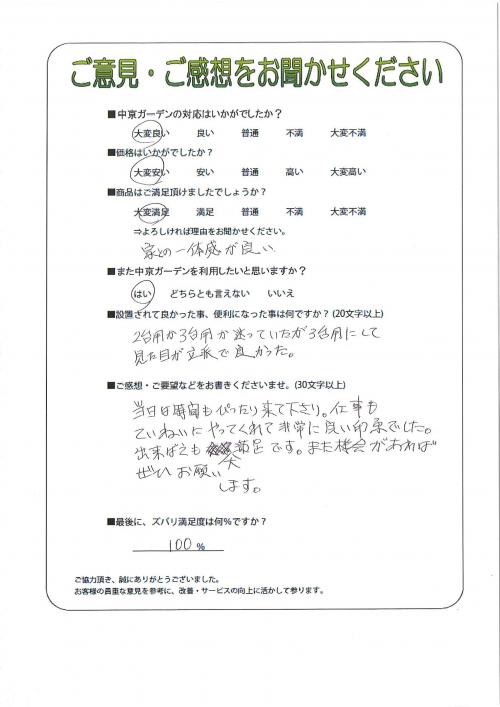 ご意見・ご感想をお聞かせください
■中京ガーデンの対応はいかがでしたか？
大変良い 良い 普通 不満 大変不満
■価格はいかがでしたか？
大変安い 安い 普通 高い 大変高い
■商品はご満足頂けましたでしょうか？
大変満足 満足 普通 不満 大変不満
⇒よろしければ理由をお聞かせください。
家との一体感が良い
■また中京ガーデンを利用したいと思いますか？
はい どちらとも言えない いいえ
■設置されて良かった事、便利になった事は何ですか？(20文字以上)
2台用か3台用か迷っていたが3台用にして
見た目が立派で良かった。
■ご感想・ご要望などをお書きくださいませ。(30文字以上)
当日は時間もぴったり来て下さり。仕事も
ていねいにやってくれて非常に良い印象でした。
出来ばえも大満足です。また機会があれば
ぜひお願い
します。
■最後に、ズバリ満足度は何％ですか？
100％
ご協力頂き、誠にありがとうございました。
お客様の貴重な意見を参考に、改善・サービスの向上に活かして参ります。